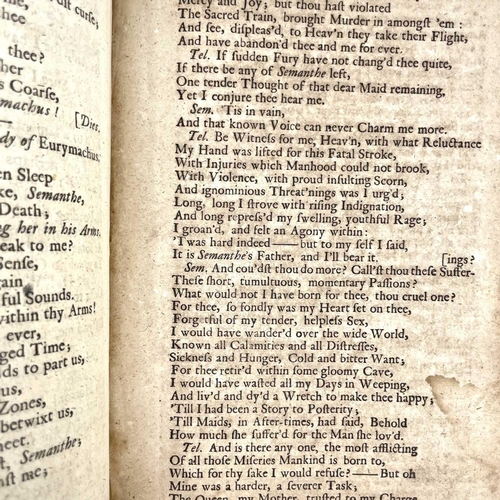 dist curse,
thee?
her
s Coarse,
machus!
[Dies.
dy of Eurymachus.
en Sleep
ke, Semanthe,
Death;
ng her in his Arms.
eak to me?
Sense,
rain
ful Sounds.
within thy Arms!
ever,
ged Time;
ds to part us,
us,
Zones,
betwixt us,
heet.
t, Semanthe;
nst me;
Mercy and Joy; but thou hast violated
The Sacred Train, brought Murder in amongst 'em:
And see, displeas'd, to Heav'n they take their Flight,
And have abandon'd thee and me for ever.
Tel. If sudden Fury have not chang'd thee quite,
If there be any of Semanthe left,
One tender Thought of that dear Maid remaining,
Yet I conjure thee hear me.
Sem. 'Tis in vain,
And that known Voice can never Charm me more.
Tel. Be Witness for me, Heav'n, with what Reluctance
My Hand was lifted for this Fatal Stroke,
With Injuries which Manhood could not brook,
With Violence, with proud insulting Scorn,
And ignominious Threat'nings was I urg'd;
Long, long I strove with rising Indignation,
And long repress'd my swelling, youthful Rage;
I groan'd, and felt an Agony within:
'Twas hard indeed——but to my self I said,
It is Semanthe's Father, and I'll bear it. [ings?
Sem. And cou'dst thou do more? Call'st thou these Suffer-
These short, tumultuous, momentary Passions?
What would not I have born for thee, thou cruel one?
For thee, so fondly was my Heart set on thee,
Forgetful of my tender, helpless Sex,
I would have wander'd over the wide World,
Known all Calamities and all Distresses,
Sickness and Hunger, Cold and bitter Want;
For thee retir'd within some gloomy Cave,
I would have wasted all my Days in Weeping,
And liv'd and dy'd a Wretch to make thee happy;
'Till I had been a Story to Posterity;
'Till Maids, in After-times, had said, Behold
How much she suffer'd for the Man she lov'd.
Tel. And is there any one, the most afflicting
Of all those Miseries Mankind is born to,
Which for thy sake I would refuse?——But oh
Mine was a harder, a severer Task;
The Queen, my Mother, trusted to my Charge